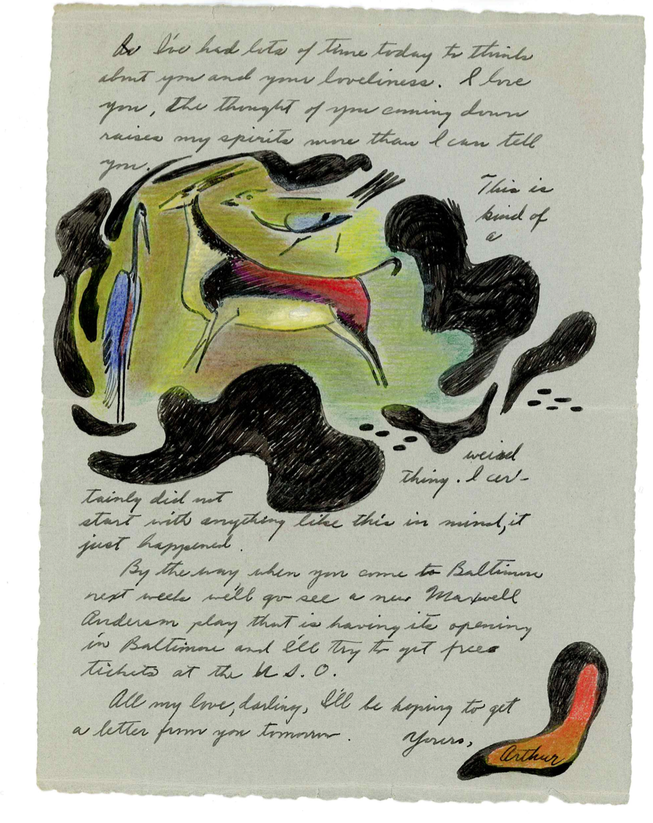 So I've had lots of time today to think
about you and your loveliness. I love
you, the thought of you coming down
raises my spirits more than I can tell
you.
This is
kind of
a
weird
thing. I cer-
tainly did not
start with anything like this in mind, it
just happened.
By the way when you come to Baltimore
next week we'll go see a new Maxwell
Anderson play that is having its opening
in Baltimore and I'll try to get free
tickets at the U.S.O.
All my love, darling, I'll be hoping to get
a letter from you tomorrow.
Yours,
Arthur